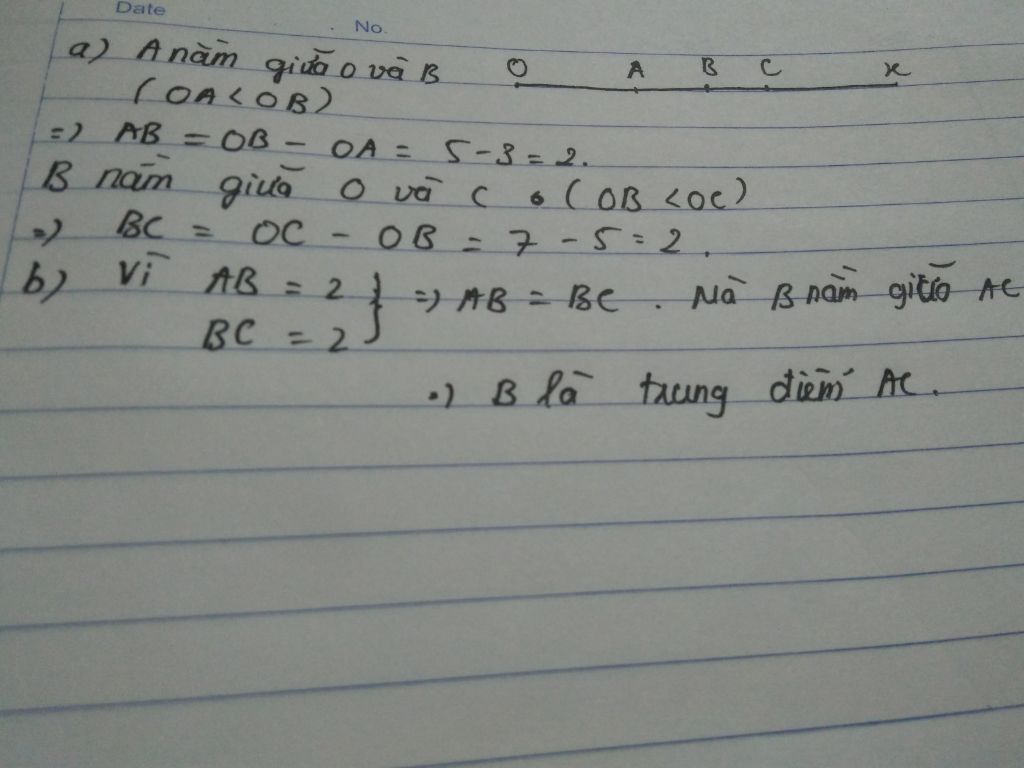 Date
No.
a) A nằm giữa O và B
O A B C x
(OA < OB)
=> AB = OB - OA = 5 - 3 = 2.
B nằm giữa O và C (OB < OC)
=> BC = OC - OB = 7 - 5 = 2.
b) Vì AB = 2 } => AB = BC. Mà B nằm giữa AC
BC = 2
=> B là trung điểm AC.